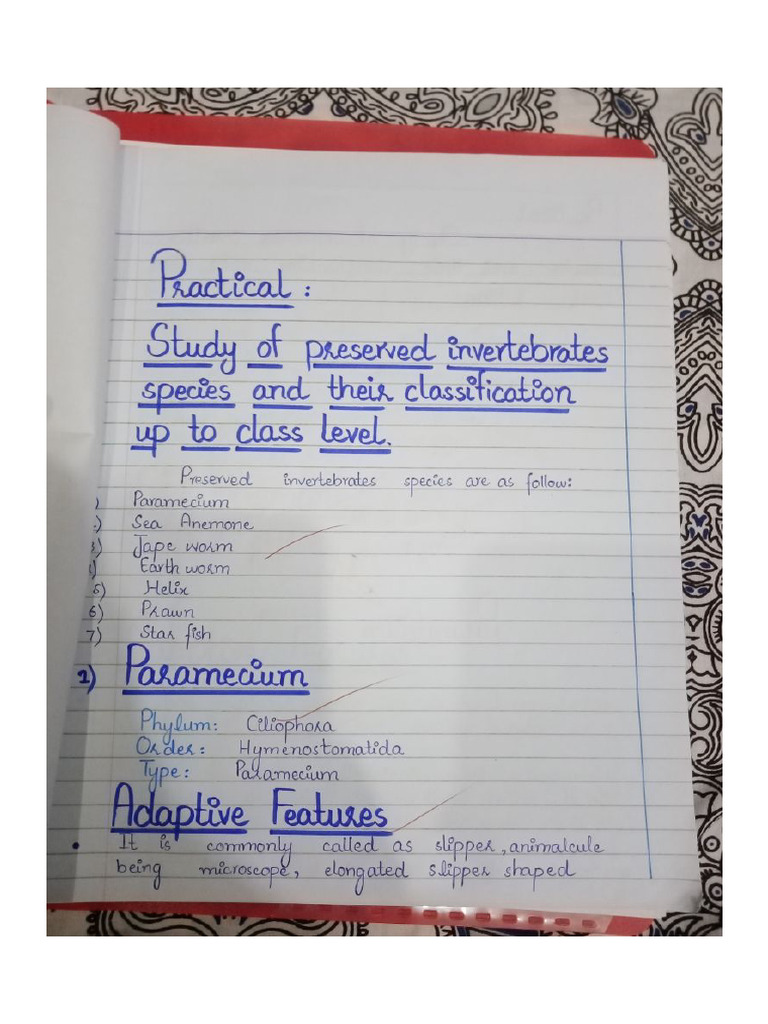 Practical :
Study of preserved invertebrates
species and their classification
up to class level.
Preserved invertebrates species are as follow:
) Paramecium
) Sea Anemone
3) Tape worm
) Earth worm
5) Helix
6) Prawn
7) Star fish
1) Paramecium
Phylum: Ciliophora
Order: Hymenostomatida
Type: Paramecium
Adaptive Features
• It is commonly called as slipper, animalcule
being microscope, elongated slipper shaped